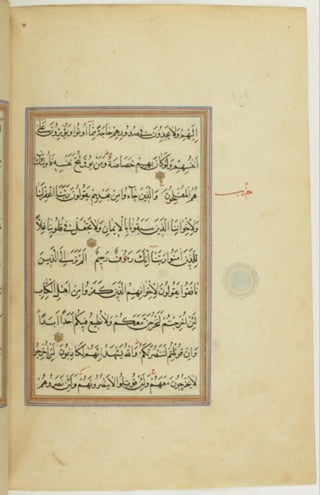 اِلَيْهِمْ وَلَا يَجِدُونَ فِى صُدُورِهِمْ حَاجَةً مِمَّا اُوتُوا وَيُؤْثِرُونَ عَلٰى
اَنْفُسِهِمْ وَلَوْ كَانَ بِهِمْ خَصَاصَةٌ وَمَنْ يُوقَ شُحَّ نَفْسِهِ فَاُولٰئِكَ
هُمُ الْمُفْلِحُونَ وَالَّذِينَ جَاؤُ مِنْ بَعْدِهِمْ يَقُولُونَ رَبَّنَا اغْفِرْ لَنَا
وَلِاِخْوَانِنَا الَّذِينَ سَبَقُونَا بِالْاِيمَانِ وَلَا تَجْعَلْ فِى قُلُوبِنَا غِلًّا
لِلَّذِينَ اٰمَنُوا رَبَّنَا اِنَّكَ رَؤُفٌ رَحِيمٌ اَلَمْ تَرَ اِلَى الَّذِينَ
نَافَقُوا يَقُولُونَ لِاِخْوَانِهِمُ الَّذِينَ كَفَرُوا مِنْ اَهْلِ الْكِتَابِ
لَئِنْ اُخْرِجْتُمْ لَنَخْرُجَنَّ مَعَكُمْ وَلَا نُطِيعُ فِيكُمْ اَحَدًا اَبَدًا
وَاِنْ قُوتِلْتُمْ لَنَنْصُرَنَّكُمْ وَاللّٰهُ يَشْهَدُ اِنَّهُمْ لَكَاذِبُونَ لَئِنْ اُخْرِجُوا
لَا يَخْرُجُونَ مَعَهُمْ وَلَئِنْ قُوتِلُوا لَا يَنْصُرُونَهُمْ وَلَئِنْ نَصَرُوهُمْ